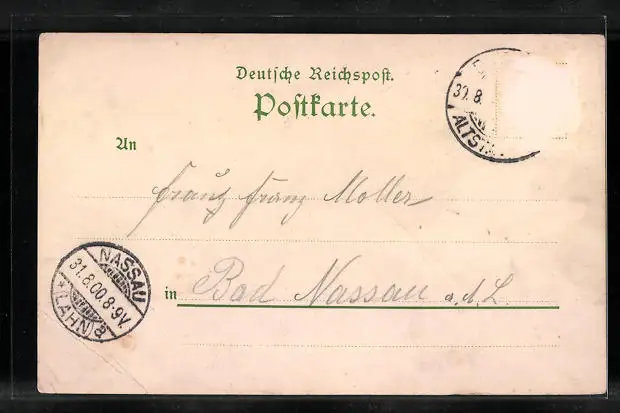 Deutsche Reichspost.
Postkarte.
30.8.
ALTST
An
Franz Moller
NASSAU
31.8.00.8-9V.
*(LAHN)a
in Bad Nassau a.d.L.